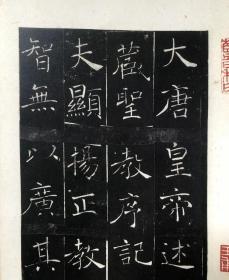 大唐皇帝述
藏聖教序記
夫顯揚正教
智無以廣其